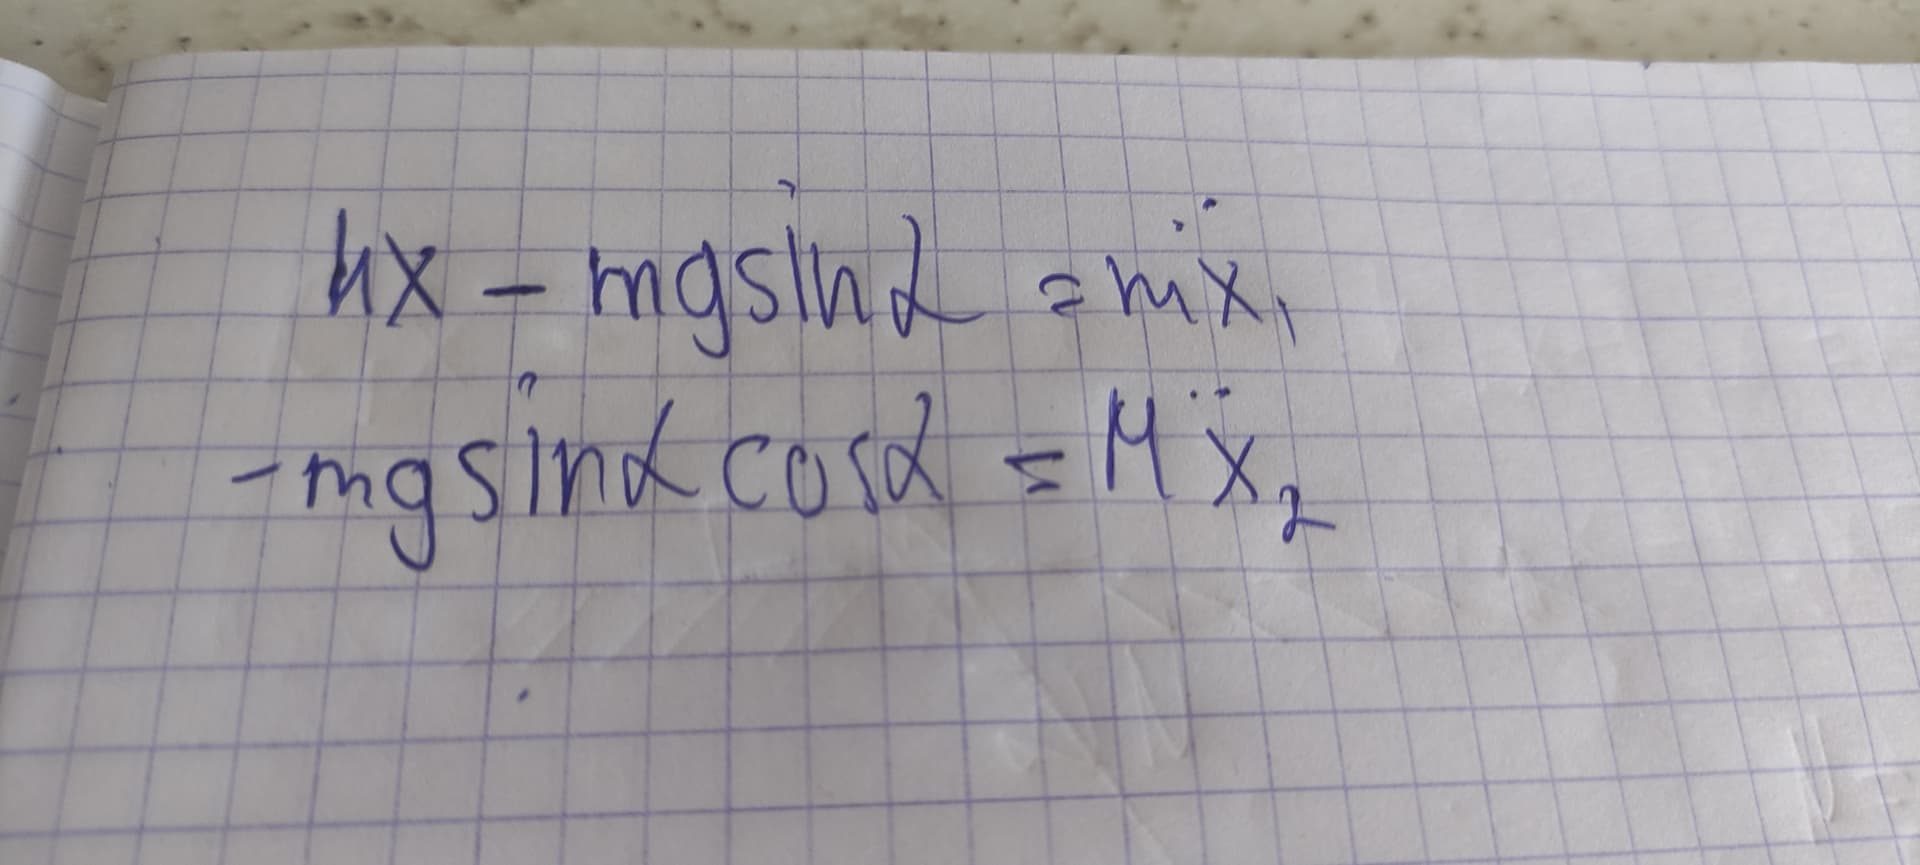 kx - mg sin α = mẍ₁
-mg sin α cos α = Mẍ₂